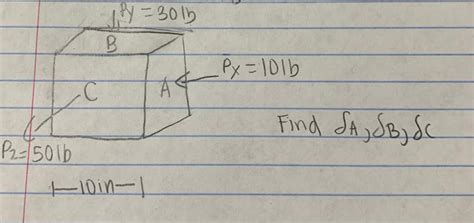 Py = 30lb
B
Px = 10lb
C
A
Find δA, δB, δC
Pz = 50lb
10in